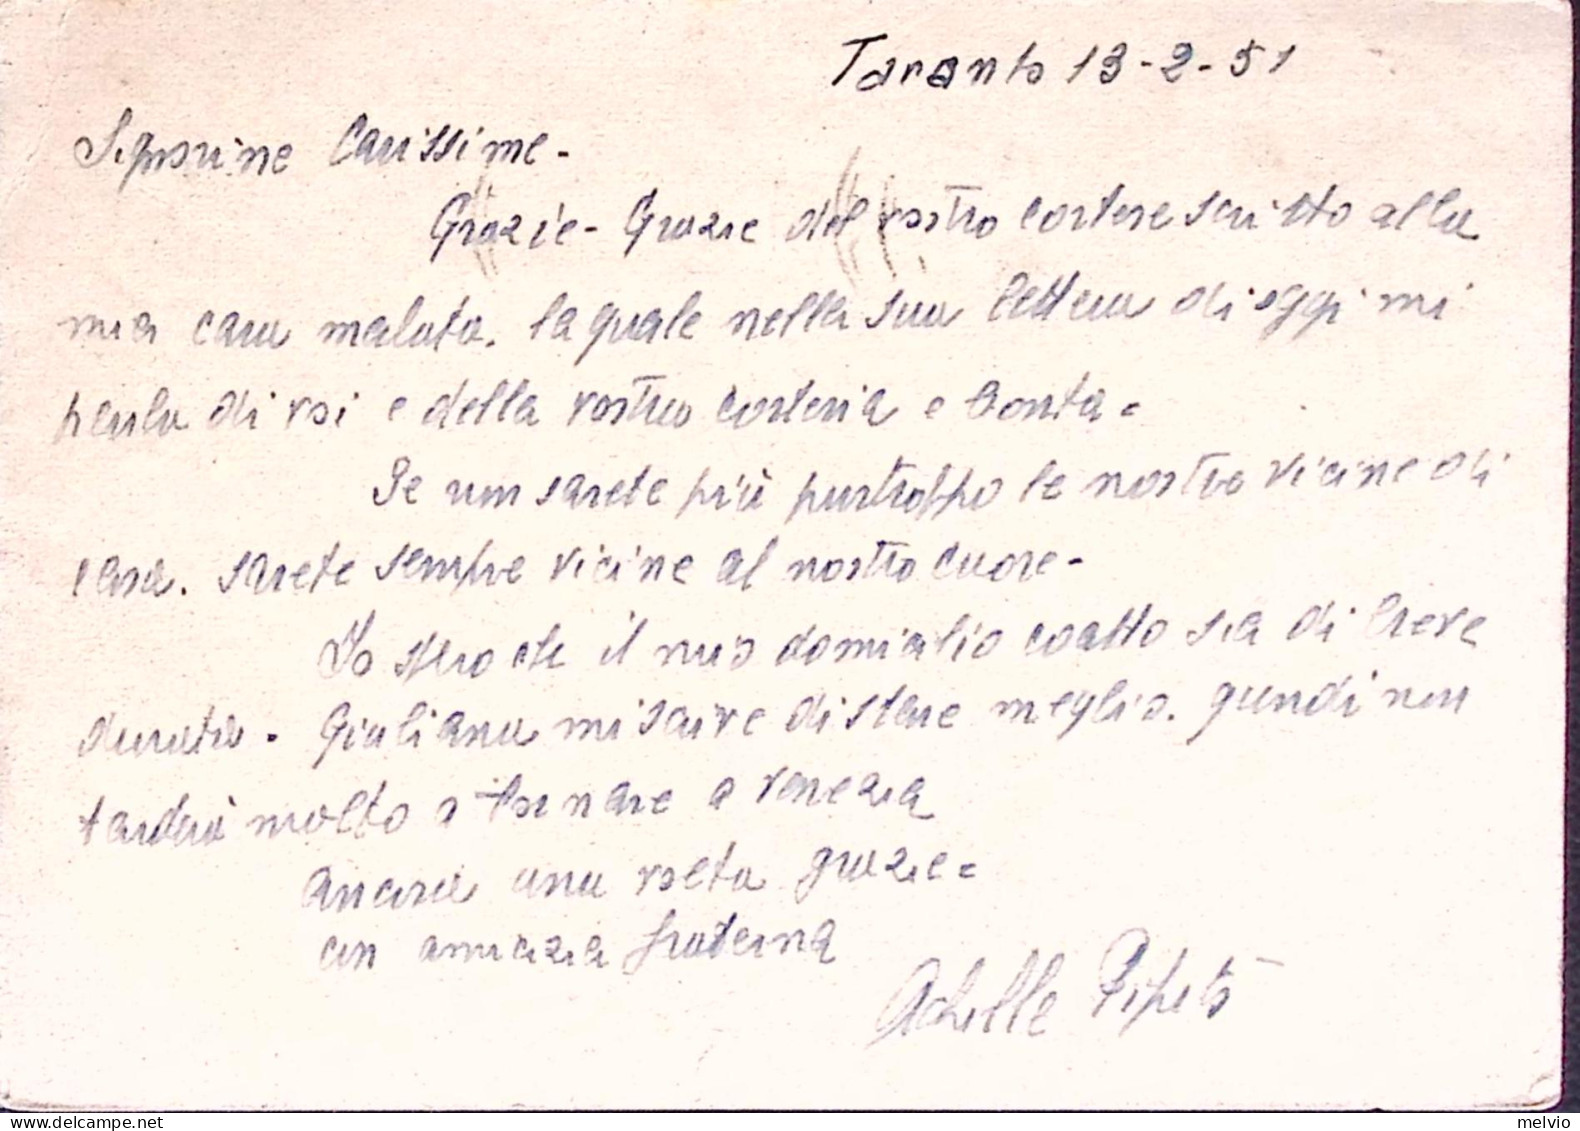 Taranto 13-2-51
Signorine Carissime -
Grazie - Grazie del vostro cortese scritto alla
mia cara malata. la quale nella sua lettera di oggi mi
parla di voi e della vostra cortesia e bontà =
Se non sarete più purtroppo le nostre vicine di
casa. sarete sempre vicine al nostro cuore -
Io spero che il mio domicilio coatto sia di breve
durata - Giuliana mi scrive di stare meglio. quindi non
tarderà molto a tornare a Venezia
Ancora una volta grazie =
con amicizia fraterna
Achille
melvio